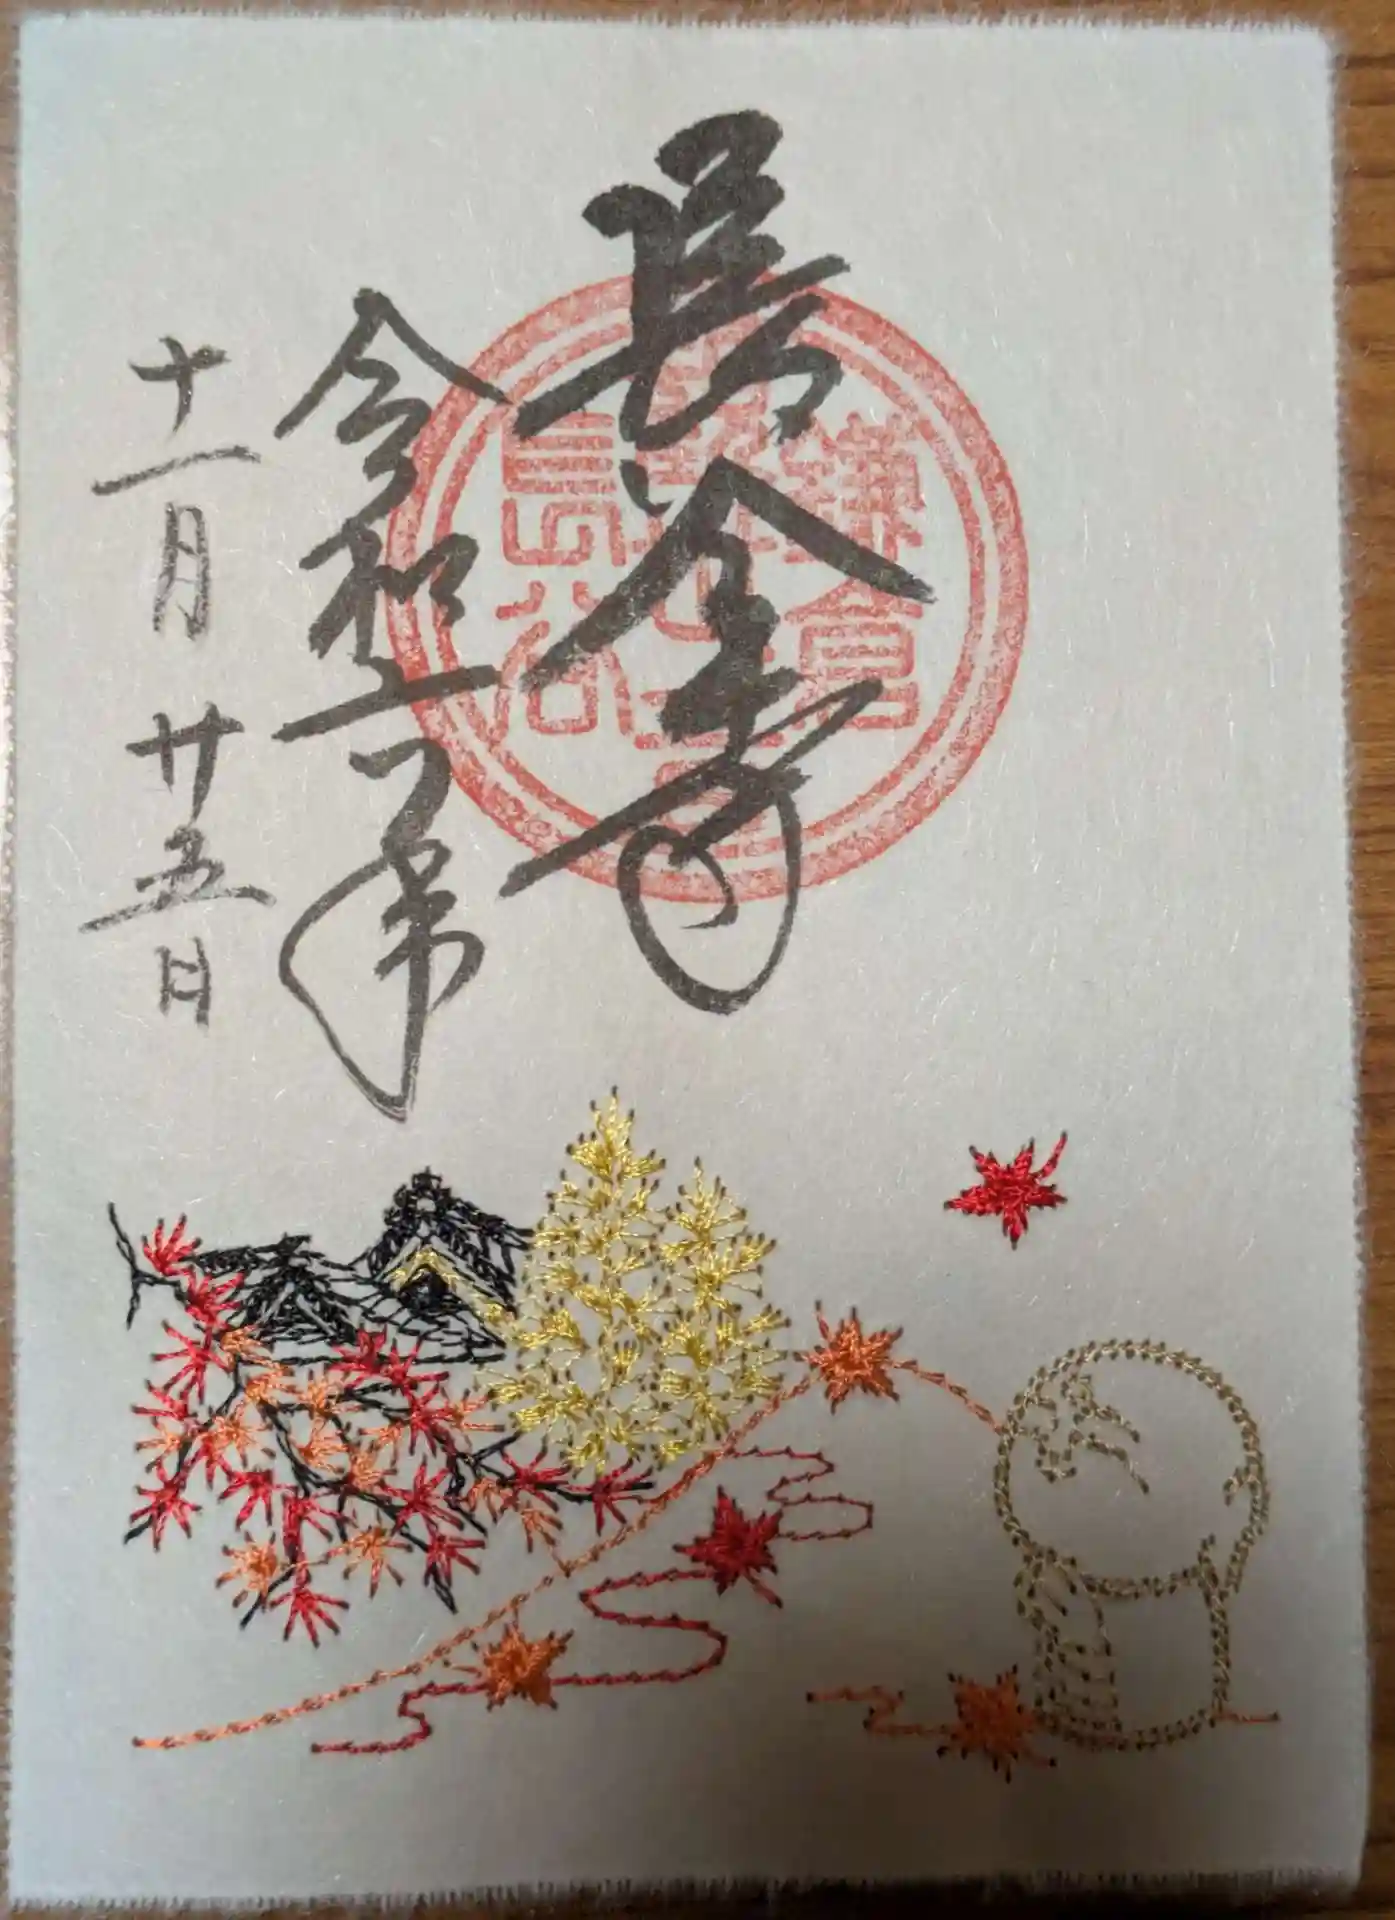 長谷寺
令和六年
十一月廿五日
鎌倉
長谷